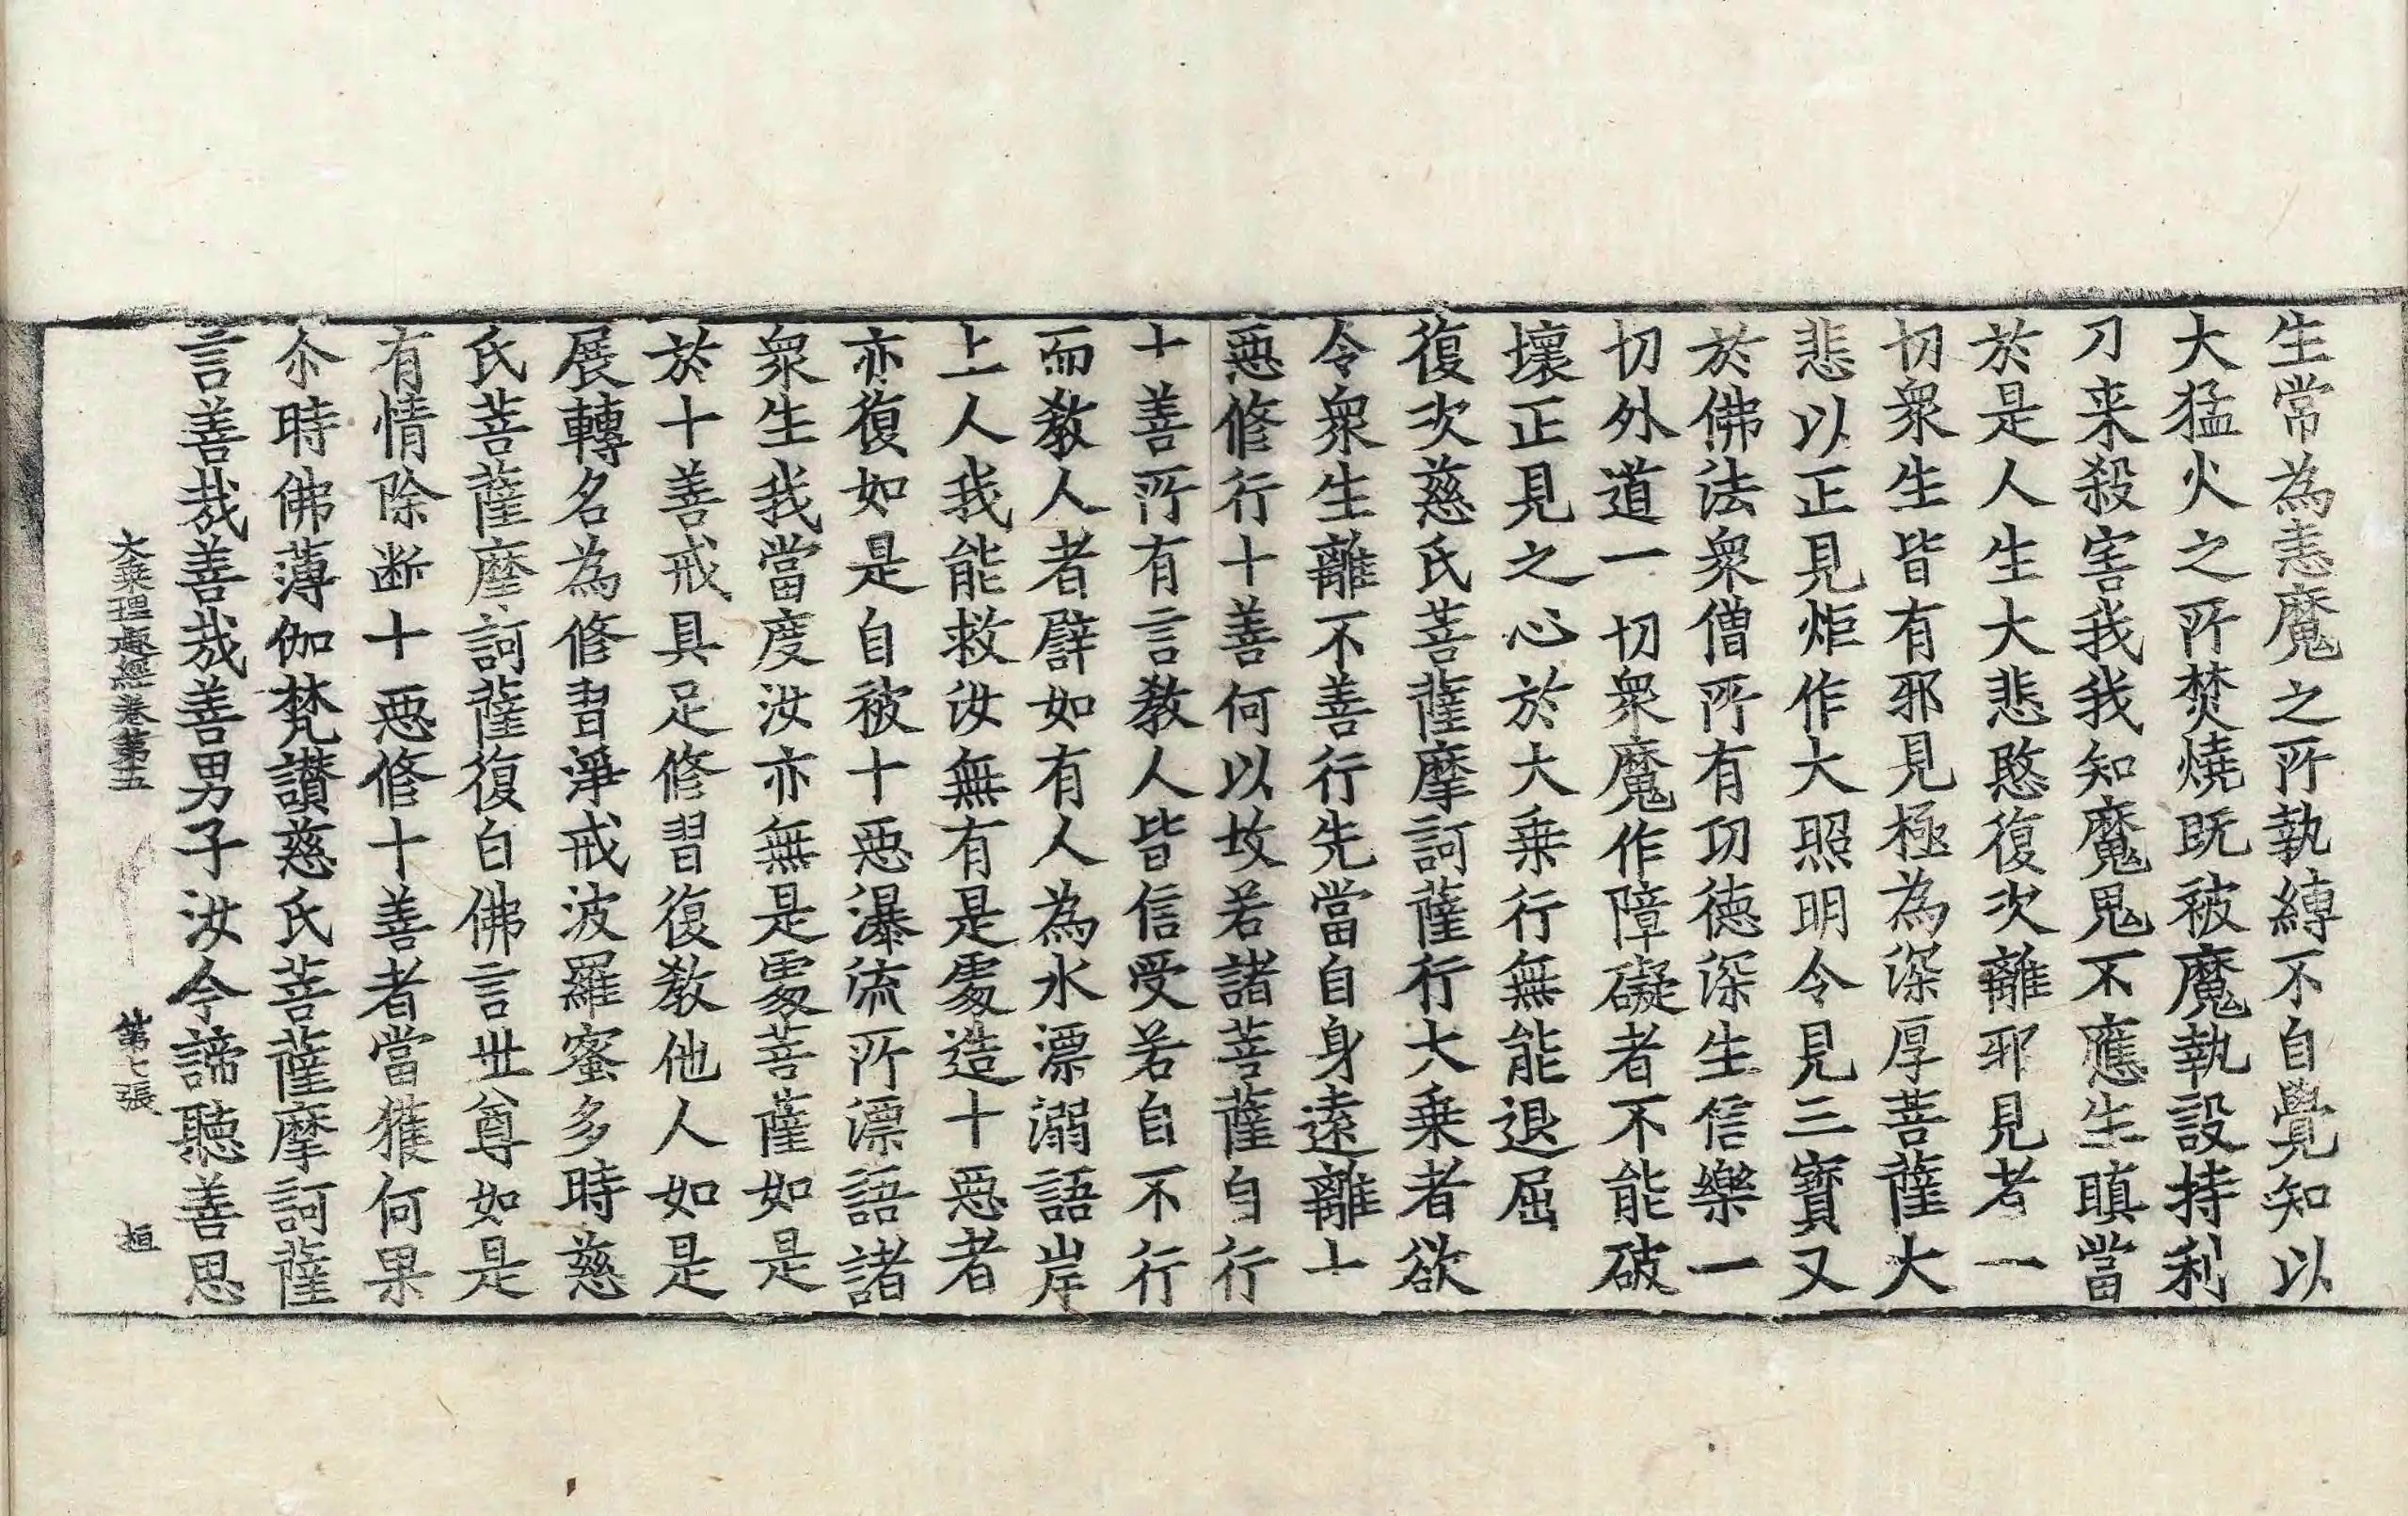 生常為恚魔之所執縛不自覺知以
大猛火之所焚燒既被魔執設持利
刀来殺害我我知魔鬼不應生瞋當
於是人生大悲愍復次離邪見者一
切衆生皆有邪見極為深厚菩薩大
悲以正見炬作大照明令見三寶又
於佛法衆僧所有功德深生信樂一
切外道一切衆魔作障礙者不能破
壞正見之心於大乗行無能退屈
復次慈氏菩薩摩訶薩行大乗者欲
令衆生離不善行先當自身遠離十
惡修行十善何以故若諸菩薩自行
十善所有言教人皆信受若自不行
而教人者譬如有人為水漂溺語岸
上人我能救汝無有是處造十惡者
亦復如是自被十惡瀑流所漂語諸
衆生我當度汝亦無是處菩薩如是
於十善戒具足修習復教他人如是
展轉名為修習淨戒波羅蜜多時慈
氏菩薩摩訶薩復白佛言世尊如是
有情除断十惡修十善者當獲何果
尒時佛薄伽梵讃慈氏菩薩摩訶薩
言善哉善哉善男子汝今諦聽善思
大乗理趣經卷第五　第七張　桓